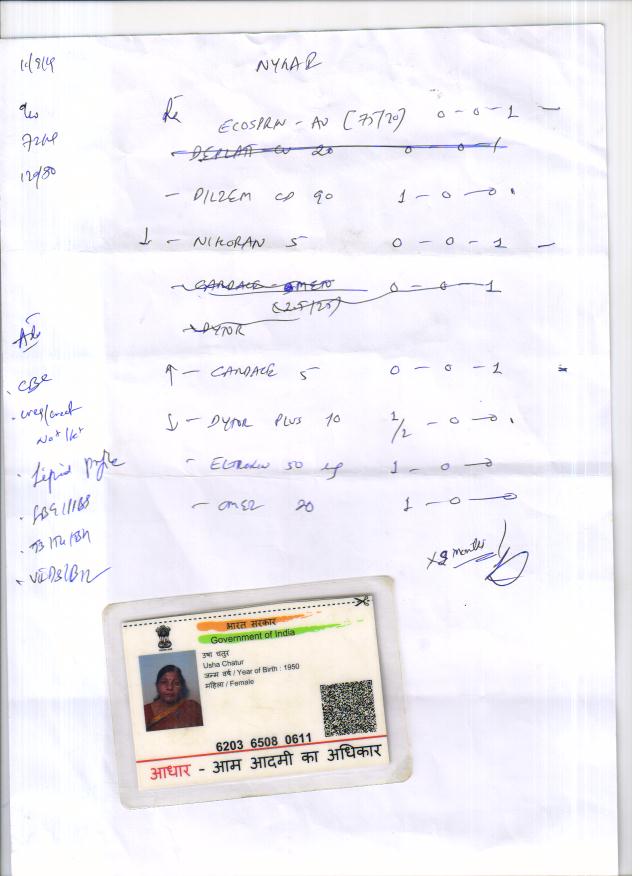 NYHAR
Rx ECOSPRIN - AV [75/20] 0 - 0 - 1 -
- DEPLAT CV 20 0 0 1
72/M
120/80
- DILZEM CD 90 1 - 0 - 0
↓ - NIKORAN 5 0 - 0 - 1 -
- CARDACE METO 0 - 0 - 1
(2.5/25)
- DYTOR
Adv
↑ - CARDACE 5 0 - 0 - 1
· CBC
· Urea/Creat
Na+/K+
↓ - DYTOR PLUS 10 1/2 - 0 - 0
· Lipid Profile
- ELTROXIN 50 1 - 0 - 0
- OMEZ 20 1 - 0 - 0
x 2 months
भारत सरकार
Government of India
उषा चतुर
Usha Chatur
जन्म वर्ष / Year of Birth : 1950
महिला / Female
6203 6508 0611
आधार - आम आदमी का अधिकार